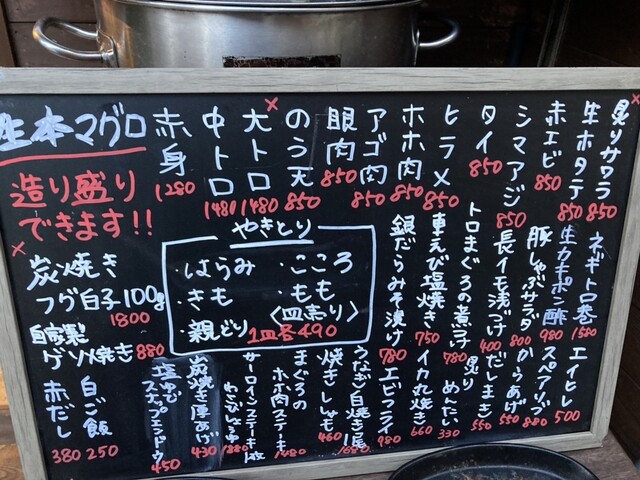 生本マグロ
造り盛り
できます!!
赤身
1280
中トロ
1480
大トロ
1480
のう天
850
眼肉
850
アゴ肉
850
ホホ肉
850
ヒラメ
850
タイ
850
シマアジ
850
赤エビ
850
生ホタテ
850
炙りサワラ
850
やきとり
・はらみ
・こころ
・きも
・もも
〈皿盛り〉
・親どり
1皿各490
銀だらみそ漬け
780
車えび塩焼き
750
トロまぐろの煮こごり
780
長イモ浅づけ
400
豚しゃぶサラダ
800
生カキポン酢
980
ネギトロ巻
1580
炭焼き
フグ白子100g
1800
自家製
ゲソ焼き
880
赤だし
380
白ご飯
250
塩ゆで
スナップエンドウ
450
炭焼き厚あげ
430
サーロインステーキ
わさびしょうゆ
1880
まぐろの
ホホ肉ステーキ
1480
焼きししゃも
460
うなぎ白焼き1尾
1680
エビフライ
980
イカ丸焼き
660
炙りめんたい
330
だしまき
550
からあげ
550
スペアリブ
880
エイヒレ
500